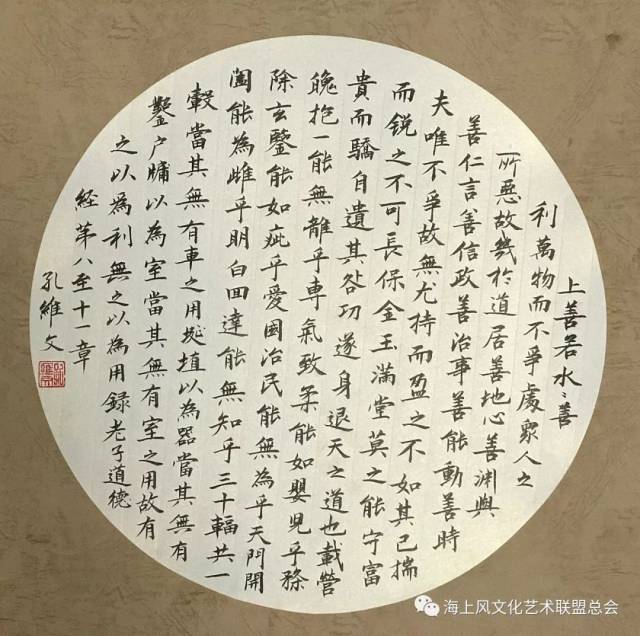 上善若水〻善
利萬物而不爭處衆人之
所惡故幾於道居善地心善淵與
善仁言善信政善治事善能動善時
夫唯不爭故無尤持而盈之不如其已揣
而銳之不可長保金玉滿堂莫之能守富
貴而驕自遺其咎功遂身退天之道也載營
魄抱一能無離乎專氣致柔能如嬰兒乎滌
除玄鑒能如疵乎愛國治民能無為乎天門開
闔能為雌乎明白四達能無知乎三十輻共一
轂當其無有車之用埏埴以為器當其無有
鑿户牖以為室當其無有室之用故有
之以為利無之以為用録老子道德
經第八至十一章
孔維文
海上风文化艺术联盟总会